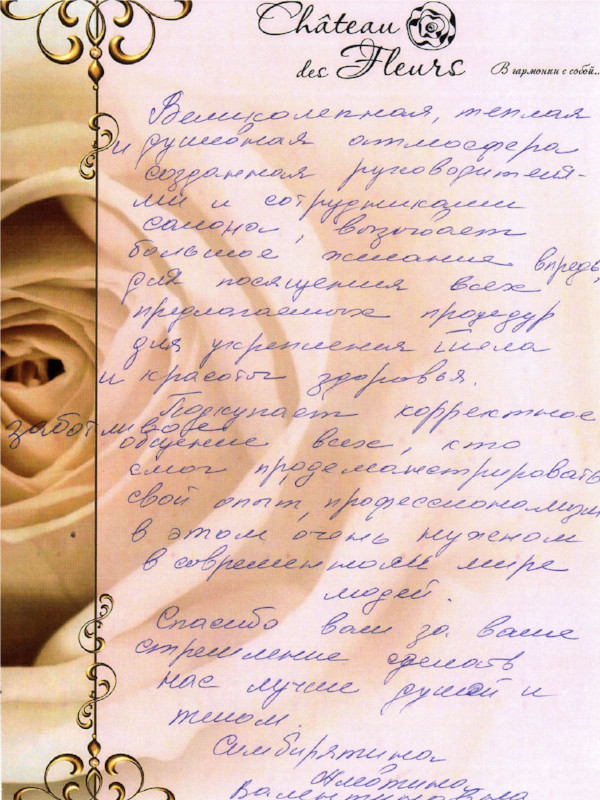 Château
des Fleurs
В гармонии с собой...
Великолепная, теплая
и душевная атмосфера
созданная руководителя-
ми и сотрудниками
салона, вызывает
большое желание впредь,
для посящения всех
предлагаемых процедур
для укрепления тела
и красоты здоровья.
Подкупает корректное
заботливое
общение всех, кто
смог продеманстрировать
свой опыт, профессионализм
в этом очень нужном
в современном мире
людей.
Спасибо вам за ваше
стремление сделать
нас лучше душой и
телом.
Симбирятина
Валентиновна